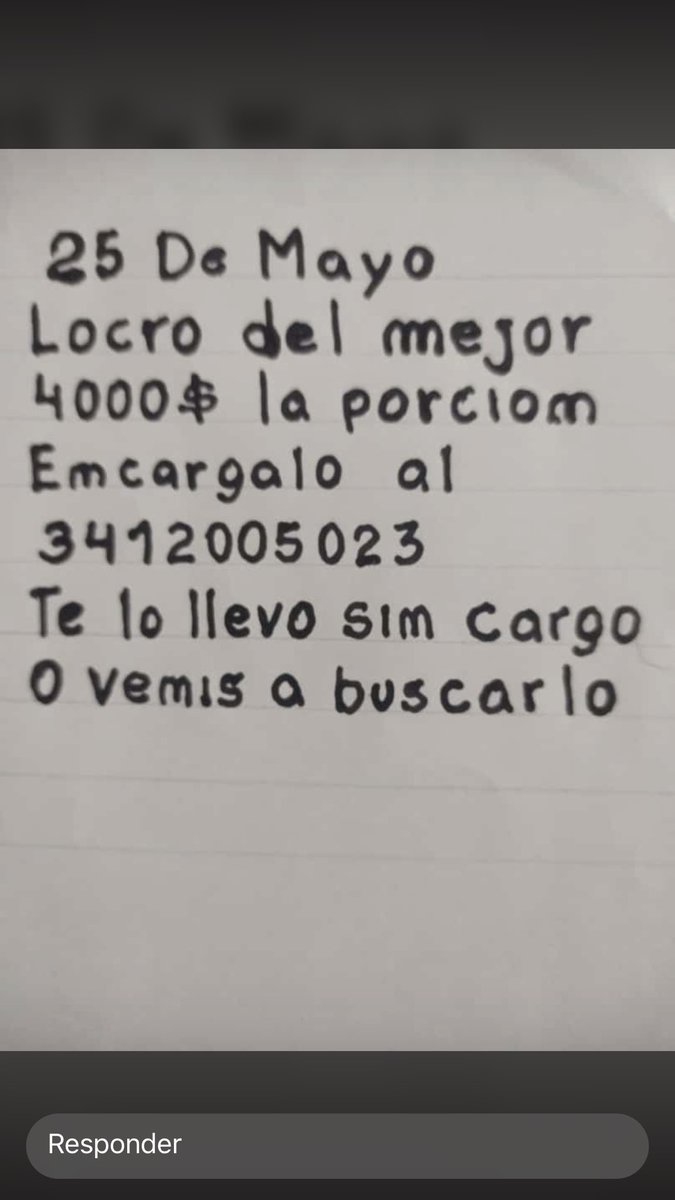 25 De Mayo
Locro del mejor
4000$ la porciom
Emcargalo al
3412005023
Te lo llevo sim cargo
O vemis a buscarlo
Responder